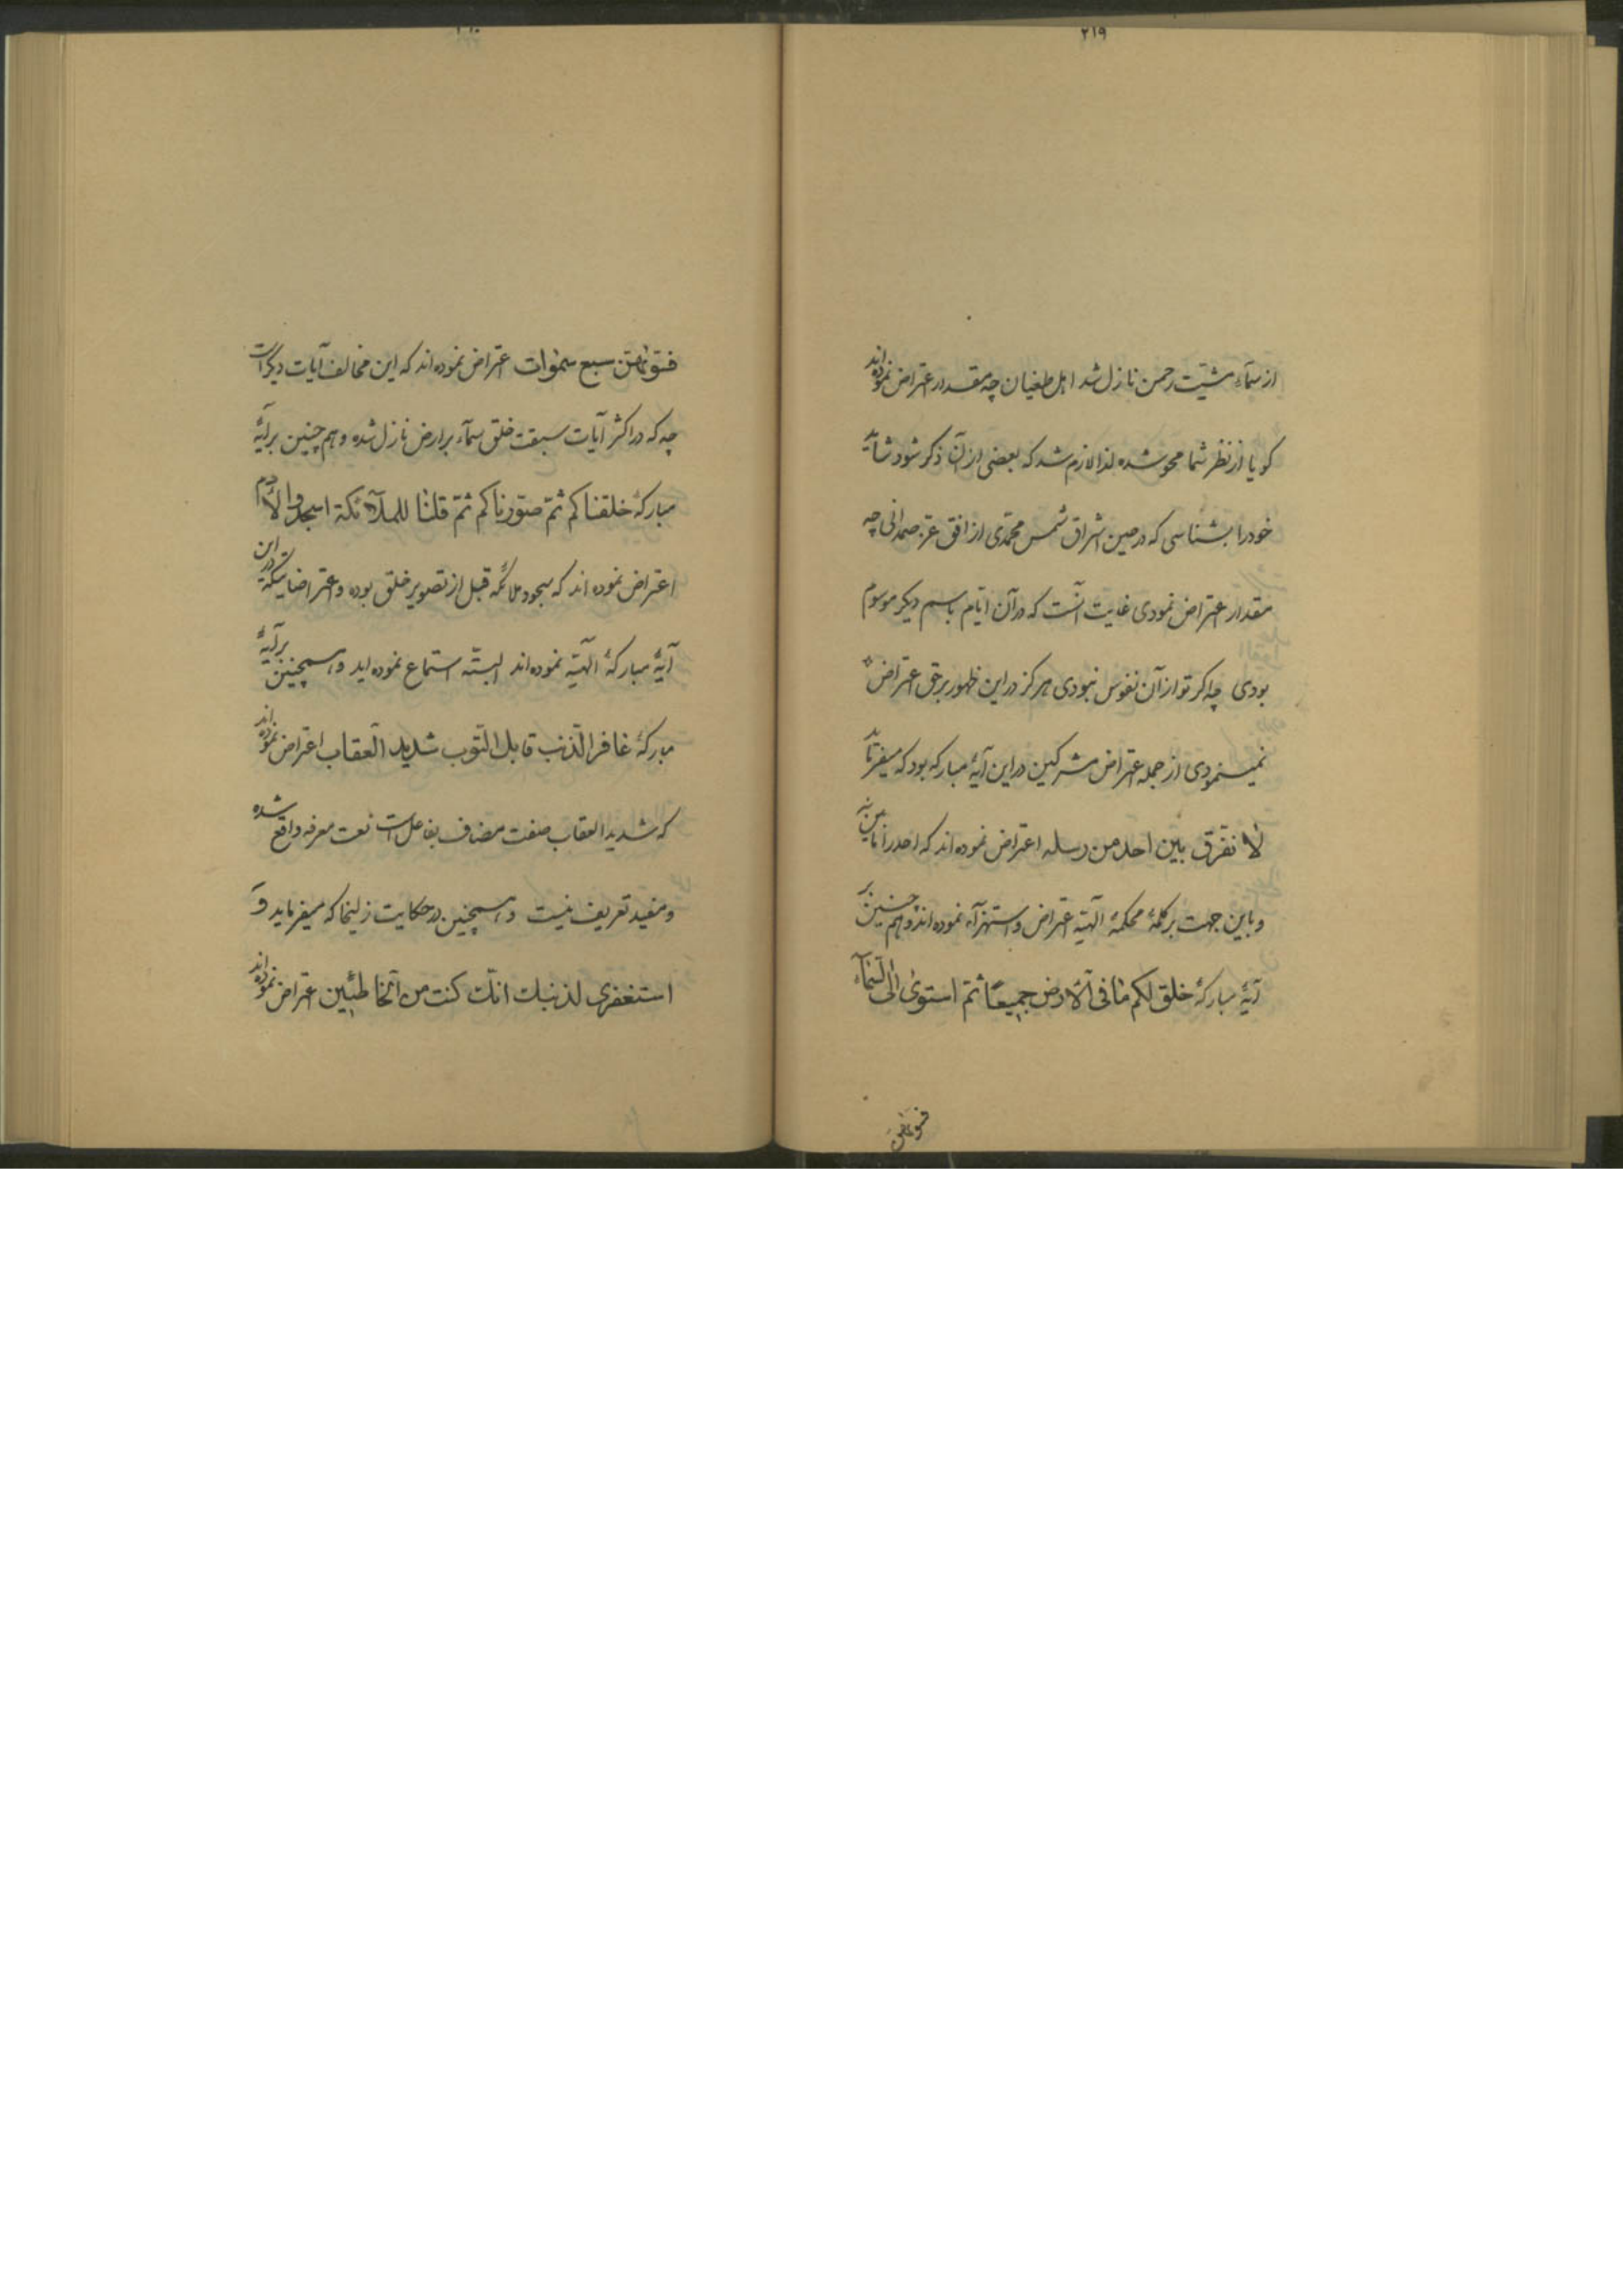 ۲۱۹
از سمآء مشیّت رحمن نازل شد اهل طغیان چه مقدار اعتراض نموده‌اند
کویا از نظر شما محو شده لذا لازم شد که بعضی از آن ذکر شود شاید
خود را بشناسی که در حین اشراق شمس محمّدی از افق عزّ صمدانی چه
مقدار اعتراض نمودی غایت آنست که در آن ایّام باسم دیکر موسوم
بودی چه اکر تو از آن نفوس نبودی هرکز در این ظهور بر حق اعتراض
نمینمودی از جمله اعتراض مشرکین در این آیهٔ مبارکه بود که میفرماید
لا نفرّق بین احد من رسله اعتراض نموده‌اند که احد را مابین نه
و باین جهت بر کلمهٔ محکمهٔ الهیّه اعتراض و استهزآء نموده‌اند و هم چنین بر
آیهٔ مبارکهٔ خلق لکم ما فی الارض جمیعًا ثمّ استوی الی السّمآء
فسوّاهنّ
فسوّاهنّ سبع سموات اعتراض نموده‌اند که این مخالف آیات دیکر است
چه که در اکثر آیات سبقت خلق سمآء بر ارض نازل شده و هم چنین بر آیهٔ
مبارکهٔ خلقناکم ثمّ صوّرناکم ثمّ قلنا للملآئکة اسجدوا لآدم
اعتراض نموده اند که سجود ملائکه قبل از تصویر خلق بوده و اعتراضاتیکه در این
آیهٔ مبارکهٔ الهیّه نموده‌اند البتّه استماع نموده‌اید و همچنین بر آیهٔ
مبارکهٔ غافر الذّنب قابل التّوب شدید العقاب اعتراض نموده‌اند
که شدید العقاب صفت مضاف بفاعل است نعت معرفه واقع شده
و مفید تعریف نیست و همچنین در حکایت زلیخا که میفرماید و
استغفری لذنبك انّك کنت من الخاطئین اعتراض نموده‌اند